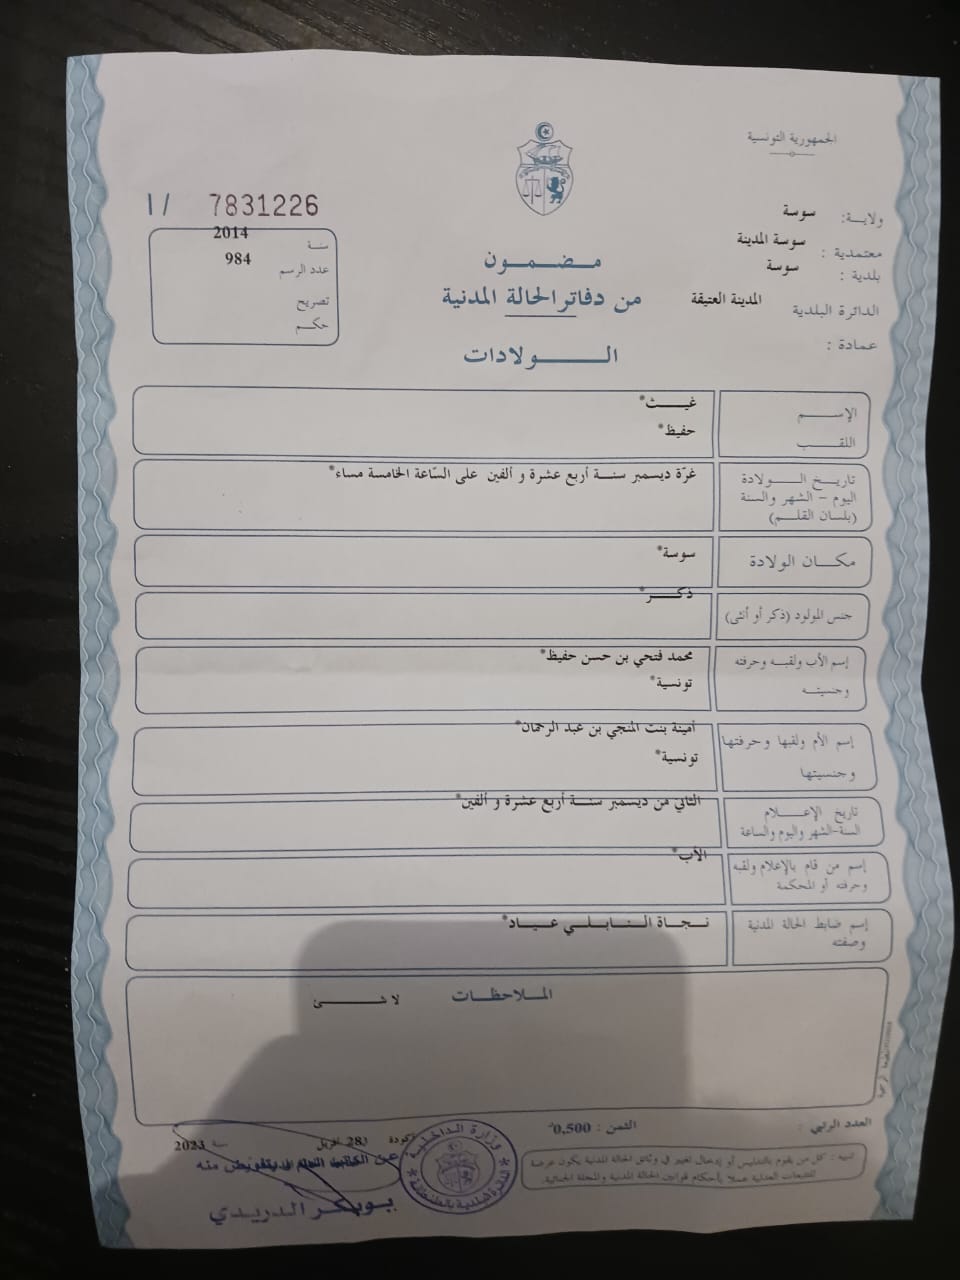 الجمهورية التونسية
ولاية: سوسة
معتمدية : سوسة المدينة
بلدية : سوسة
الدائرة البلدية المدينة العتيقة
عمادة :
مضمون
من دفاتر الحالة المدنية
الولادات
1/ 7831226
سنة 2014
عدد الرسم 984
تصريح
حكم
الإسم غيث*
اللقب حفيظ*
تاريخ الولادة غرّة ديسمبر سنة أربع عشرة و ألفين على السّاعة الخامسة مساء*
اليوم - الشهر والسنة
(بلسان القلم)
مكان الولادة سوسة*
جنس المولود (ذكر أو أنثى) ذكر*
إسم الأب ولقبه وحرفته محمد فتحي بن حسن حفيظ*
وجنسيته تونسية*
إسم الأم ولقبها وحرفتها أمينة بنت المنجي بن عبد الرحمان*
وجنسيتها تونسية*
تاريخ الإعلام الثاني من ديسمبر سنة أربع عشرة و ألفين*
السنة-الشهر واليوم والساعة
إسم من قام بالإعلام ولقبه الأب*
وحرفته أو المحكمة
إسم ضابط الحالة المدنية نجاة النابلي عياد*
وصفته
الملاحظات
لا شئ
العدد الرتبي :
الثمن : 0,500
28 أفريل سنة 2023
تنبيه : كل من يقوم بالتدليس أو إدخال تغيير في وثائق الحالة المدنية يكون عرضة
للتتبعات العدلية عملا بأحكام قوانين الحالة المدنية والمجلة الجنائية.
وزارة الداخلية
بوبكر الدريدي